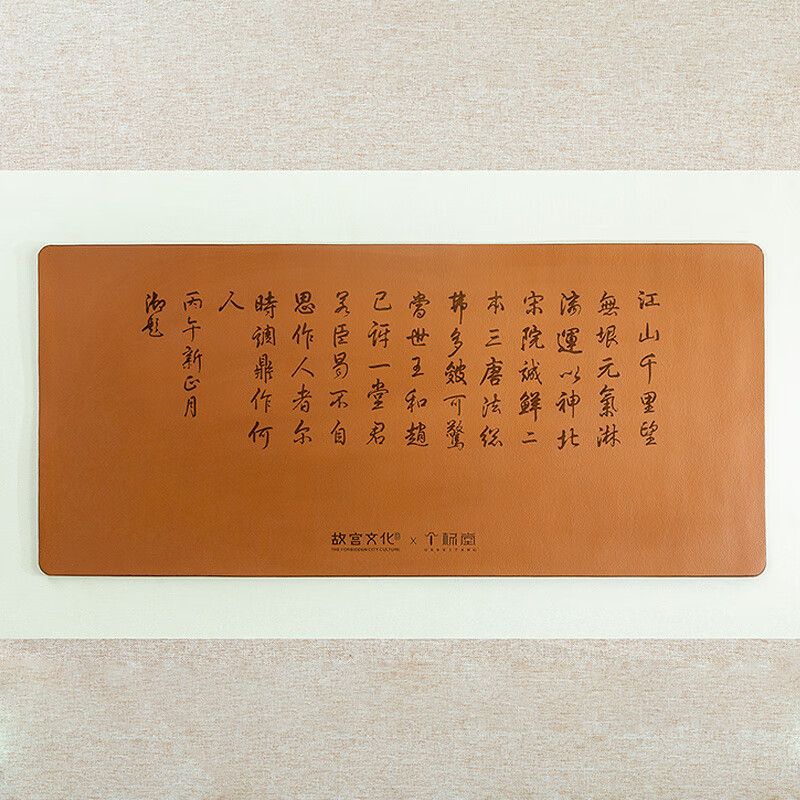 江山千里望
無垠元氣淋
漓運以神北
宋院誠鮮二
本三唐法總
弗多皴可驚
當世王和趙
已訝一堂君
若臣曷不自
思作人者尔
時調鼎作何
人
丙午新正月
御題
故宫文化 x
THE FORBIDDEN CITY CULTURE